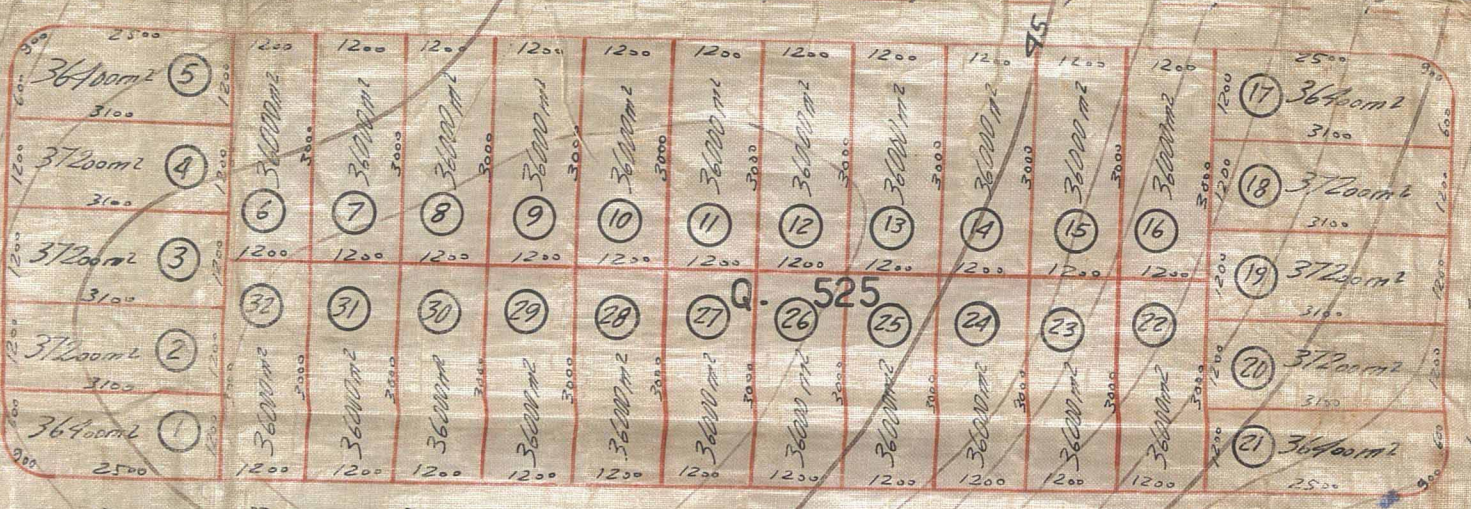 45
900 2500 1200 1200 1200 1200 1200 1200 1200 1200 1200 1200 1200 2500 900
600 36400m² 5 1200
3100
1200 37200m² 4 1200
3100
1200 37200m² 3 1200
3100
1200 37200m² 2 1200
3100
600 36400m² 1 1200
900 2500
36000m² 3000 36000m² 3000 36000m² 3000 36000m² 3000 36000m² 3000 36000m² 3000 36000m² 3000 36000m² 3000 36000m² 3000 36000m² 3000 36000m² 3000
6 7 8 9 10 11 12 13 14 15 16
1200 1200 1200 1200 1200 1200 1200 1200 1200 1200 1200
Q. 525
32 31 30 29 28 27 26 25 24 23 22
3000 36000m² 3000 36000m² 3000 36000m² 3000 36000m² 3000 36000m² 3000 36000m² 3000 36000m² 3000 36000m² 3000 36000m² 3000 36000m² 3000 36000m² 3000
1200 1200 1200 1200 1200 1200 1200 1200 1200 1200 1200
1200 17 36400m² 600
3100
1200 18 37200m² 1200
3100
1200 19 37200m² 1200
3100
1200 20 37200m² 1200
3100
1200 21 36400m² 600
2500 900